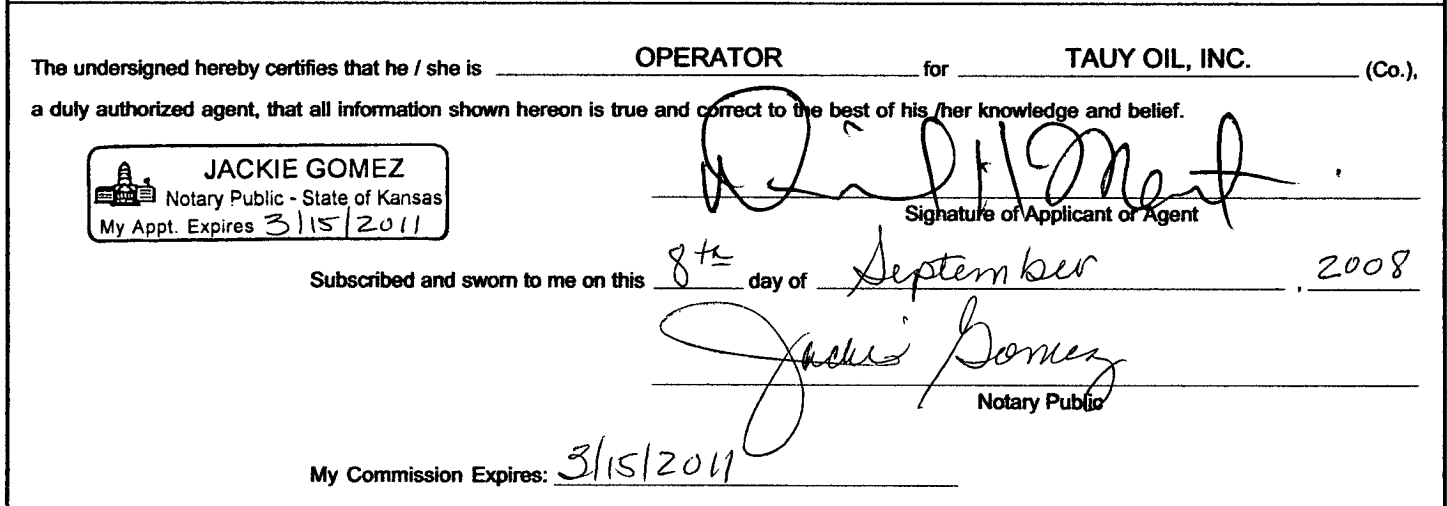 The undersigned hereby certifies that he / she is OPERATOR for TAUY OIL, INC. (Co.),
a duly authorized agent, that all information shown hereon is true and correct to the best of his /her knowledge and belief.
JACKIE GOMEZ
Notary Public - State of Kansas
My Appt. Expires 3/15/2011
Signature of Applicant or Agent
Subscribed and sworn to me on this 8th day of September , 2008
Jackie Gomez
Notary Public
My Commission Expires: 3/15/2011